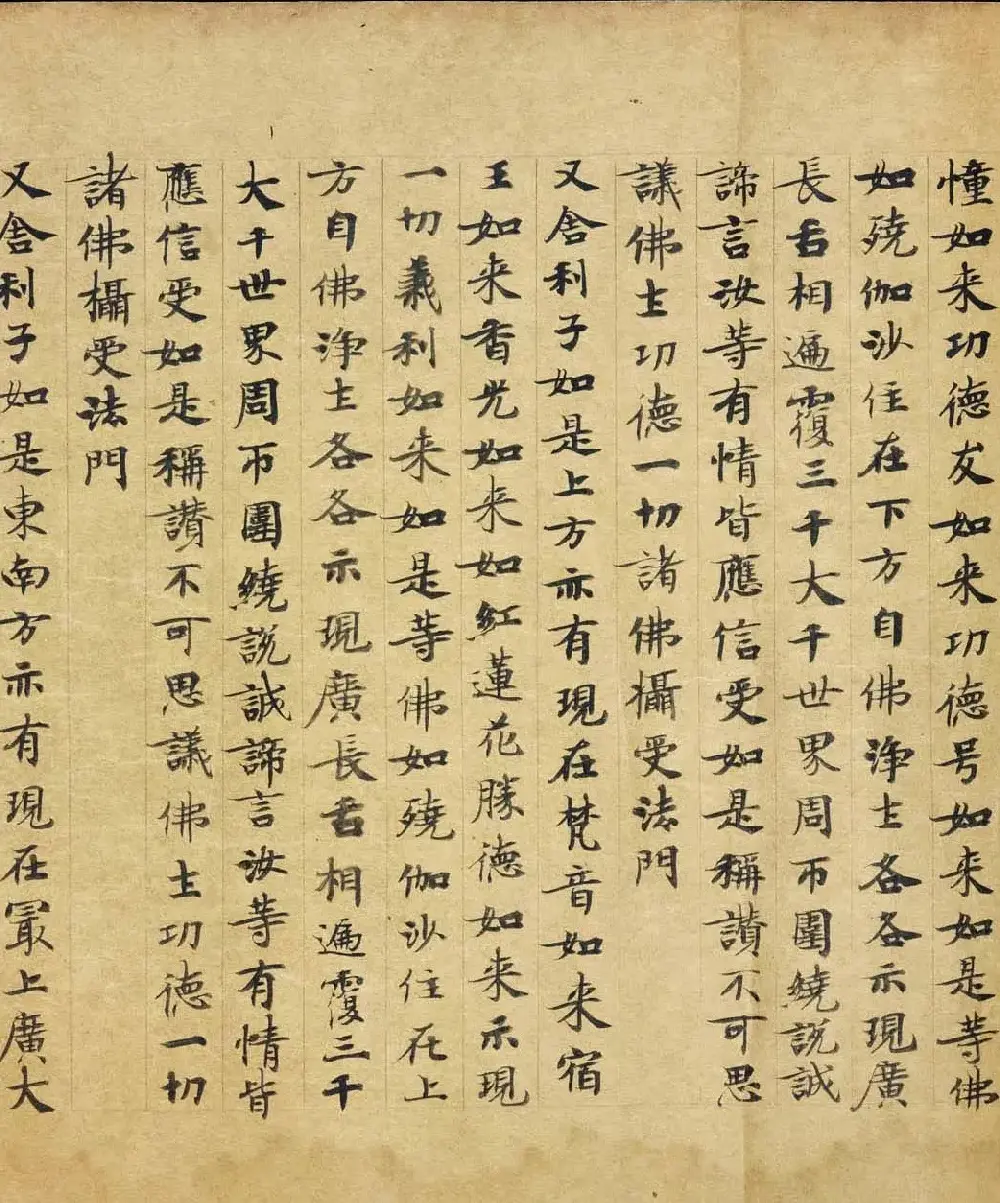 憧如来功德友如来功德号如来如是等佛
如殑伽沙住在下方自佛浄土各各示現廣
長舌相遍覆三千大千世界周帀圍繞説誠
諦言汝等有情皆應信受如是稱讃不可思
議佛土功德一切諸佛攝受法門
又舎利子如是上方亦有現在梵音如来宿
王如来香光如来如紅蓮花勝德如来示現
一切義利如来如是等佛如殑伽沙住在上
方自佛浄土各各示現廣長舌相遍覆三千
大千世界周帀圍繞説誠諦言汝等有情皆
應信受如是稱讃不可思議佛土功德一切
諸佛攝受法門
又舎利子如是東南方亦有現在冣上廣大